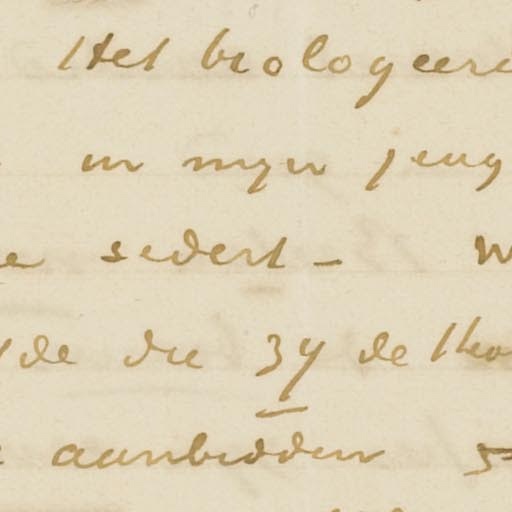 Het biologeere
in mijn jeug
sedert - W
de die zij de theo
aanbidden